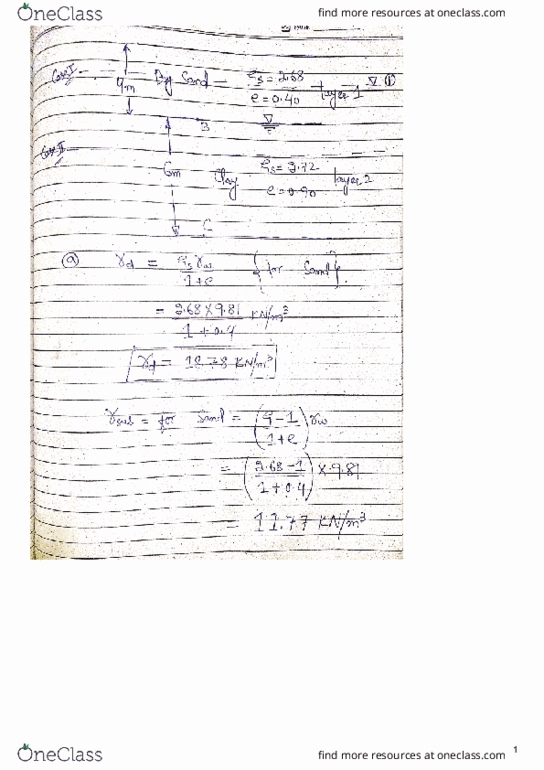 OneClass
find more resources at oneclass.com
Case I
4m Dry Sand Gs = 2.68 layer 1
e = 0.40
B
Case II
6m Clay Gs = 2.72 layer 2
e = 0.90
C
(a) γd = Gs γw / 1+e {for Sand}
= 2.68 × 9.81 / 1 + 0.4 KN/m³
γd = 18.78 KN/m³
γsub = for Sand = (G-1 / 1+e) γw
= (2.68-1 / 1+0.4) × 9.81
= 11.77 KN/m³
OneClass
find more resources at oneclass.com
1